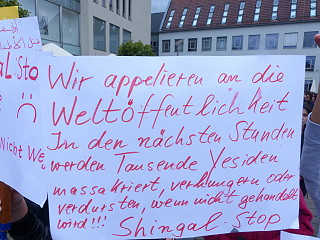 Wir appelieren an die
Weltöffentlichkeit
In den nächsten Stunden
werden Tausende Yesiden
massakriert, verhungern oder
verdursten, wenn nicht gehandelt
wird!!! Shingal-Stop
gal.Sto
Nicht We